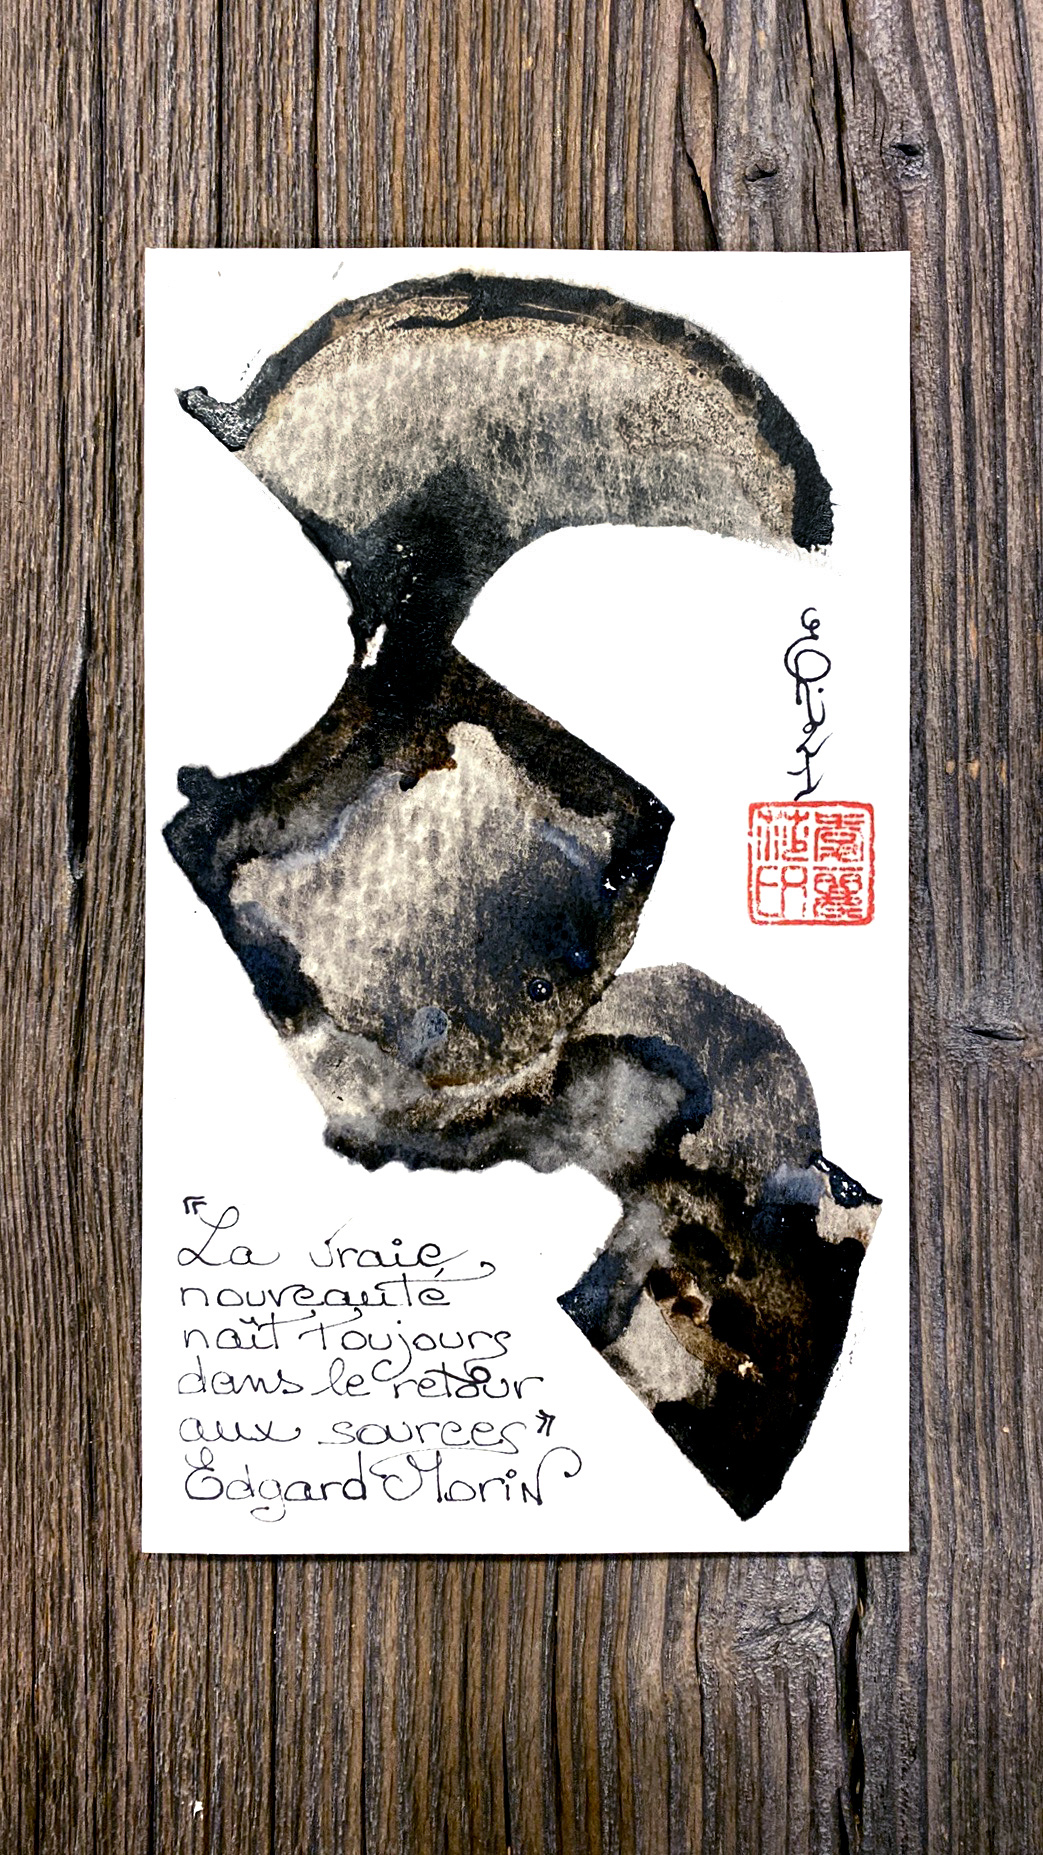 « La vraie
nouveauté
naît toujours
dans le retour
aux sources »
Edgard Morin